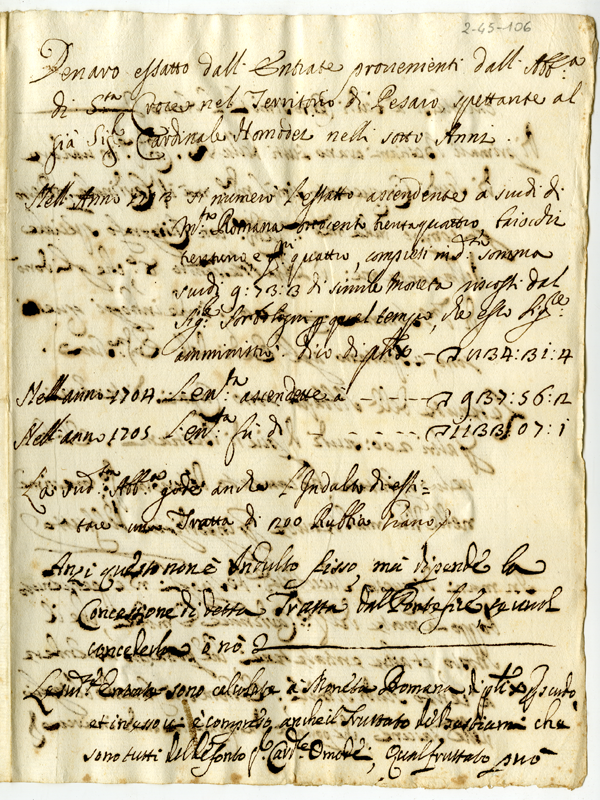 2-45-106
Denaro essatto dall: Entrate provenienti dall: Abb:a
di S:ta Croce nel Territorio di Pesaro spettante al
già Sig:e Cardinale Homodei nelli sotto Anni
Nell: Anno si numerò l'essatto ascendente à scudi di
M:ta Romana trentaquattro, baiocchi
trentuno e q:ni quattro, compresi in d:a somma
scudi 9:73:3 di simile moneta riscossi dal
Sig:e qual tempo, che esso Sig:le
amministrò. dico di 1134:31:4
Nell: anno 1704 L'en:ta ascendette à - - - 937:56:2
Nell: anno 1705 L'en:ta fù di - - - 1133:07:1
La sud:ta Abb:a gode anche l'Indulto di esti=
una Tratta di 1200 Rubbia Grano
Anzi questo non è Indulto fisso, mà dipende la
Concessione di detta Tratta dal Pontefice, se vuol
concederla ò nò
Le sud:te Entrate sono calcolate à Moneta Romana, di scudo,
et in esso è compreso anche il fruttato de Bestiami che
sono tutti del defonto S:r Card:le Omodei, Qual fruttato può